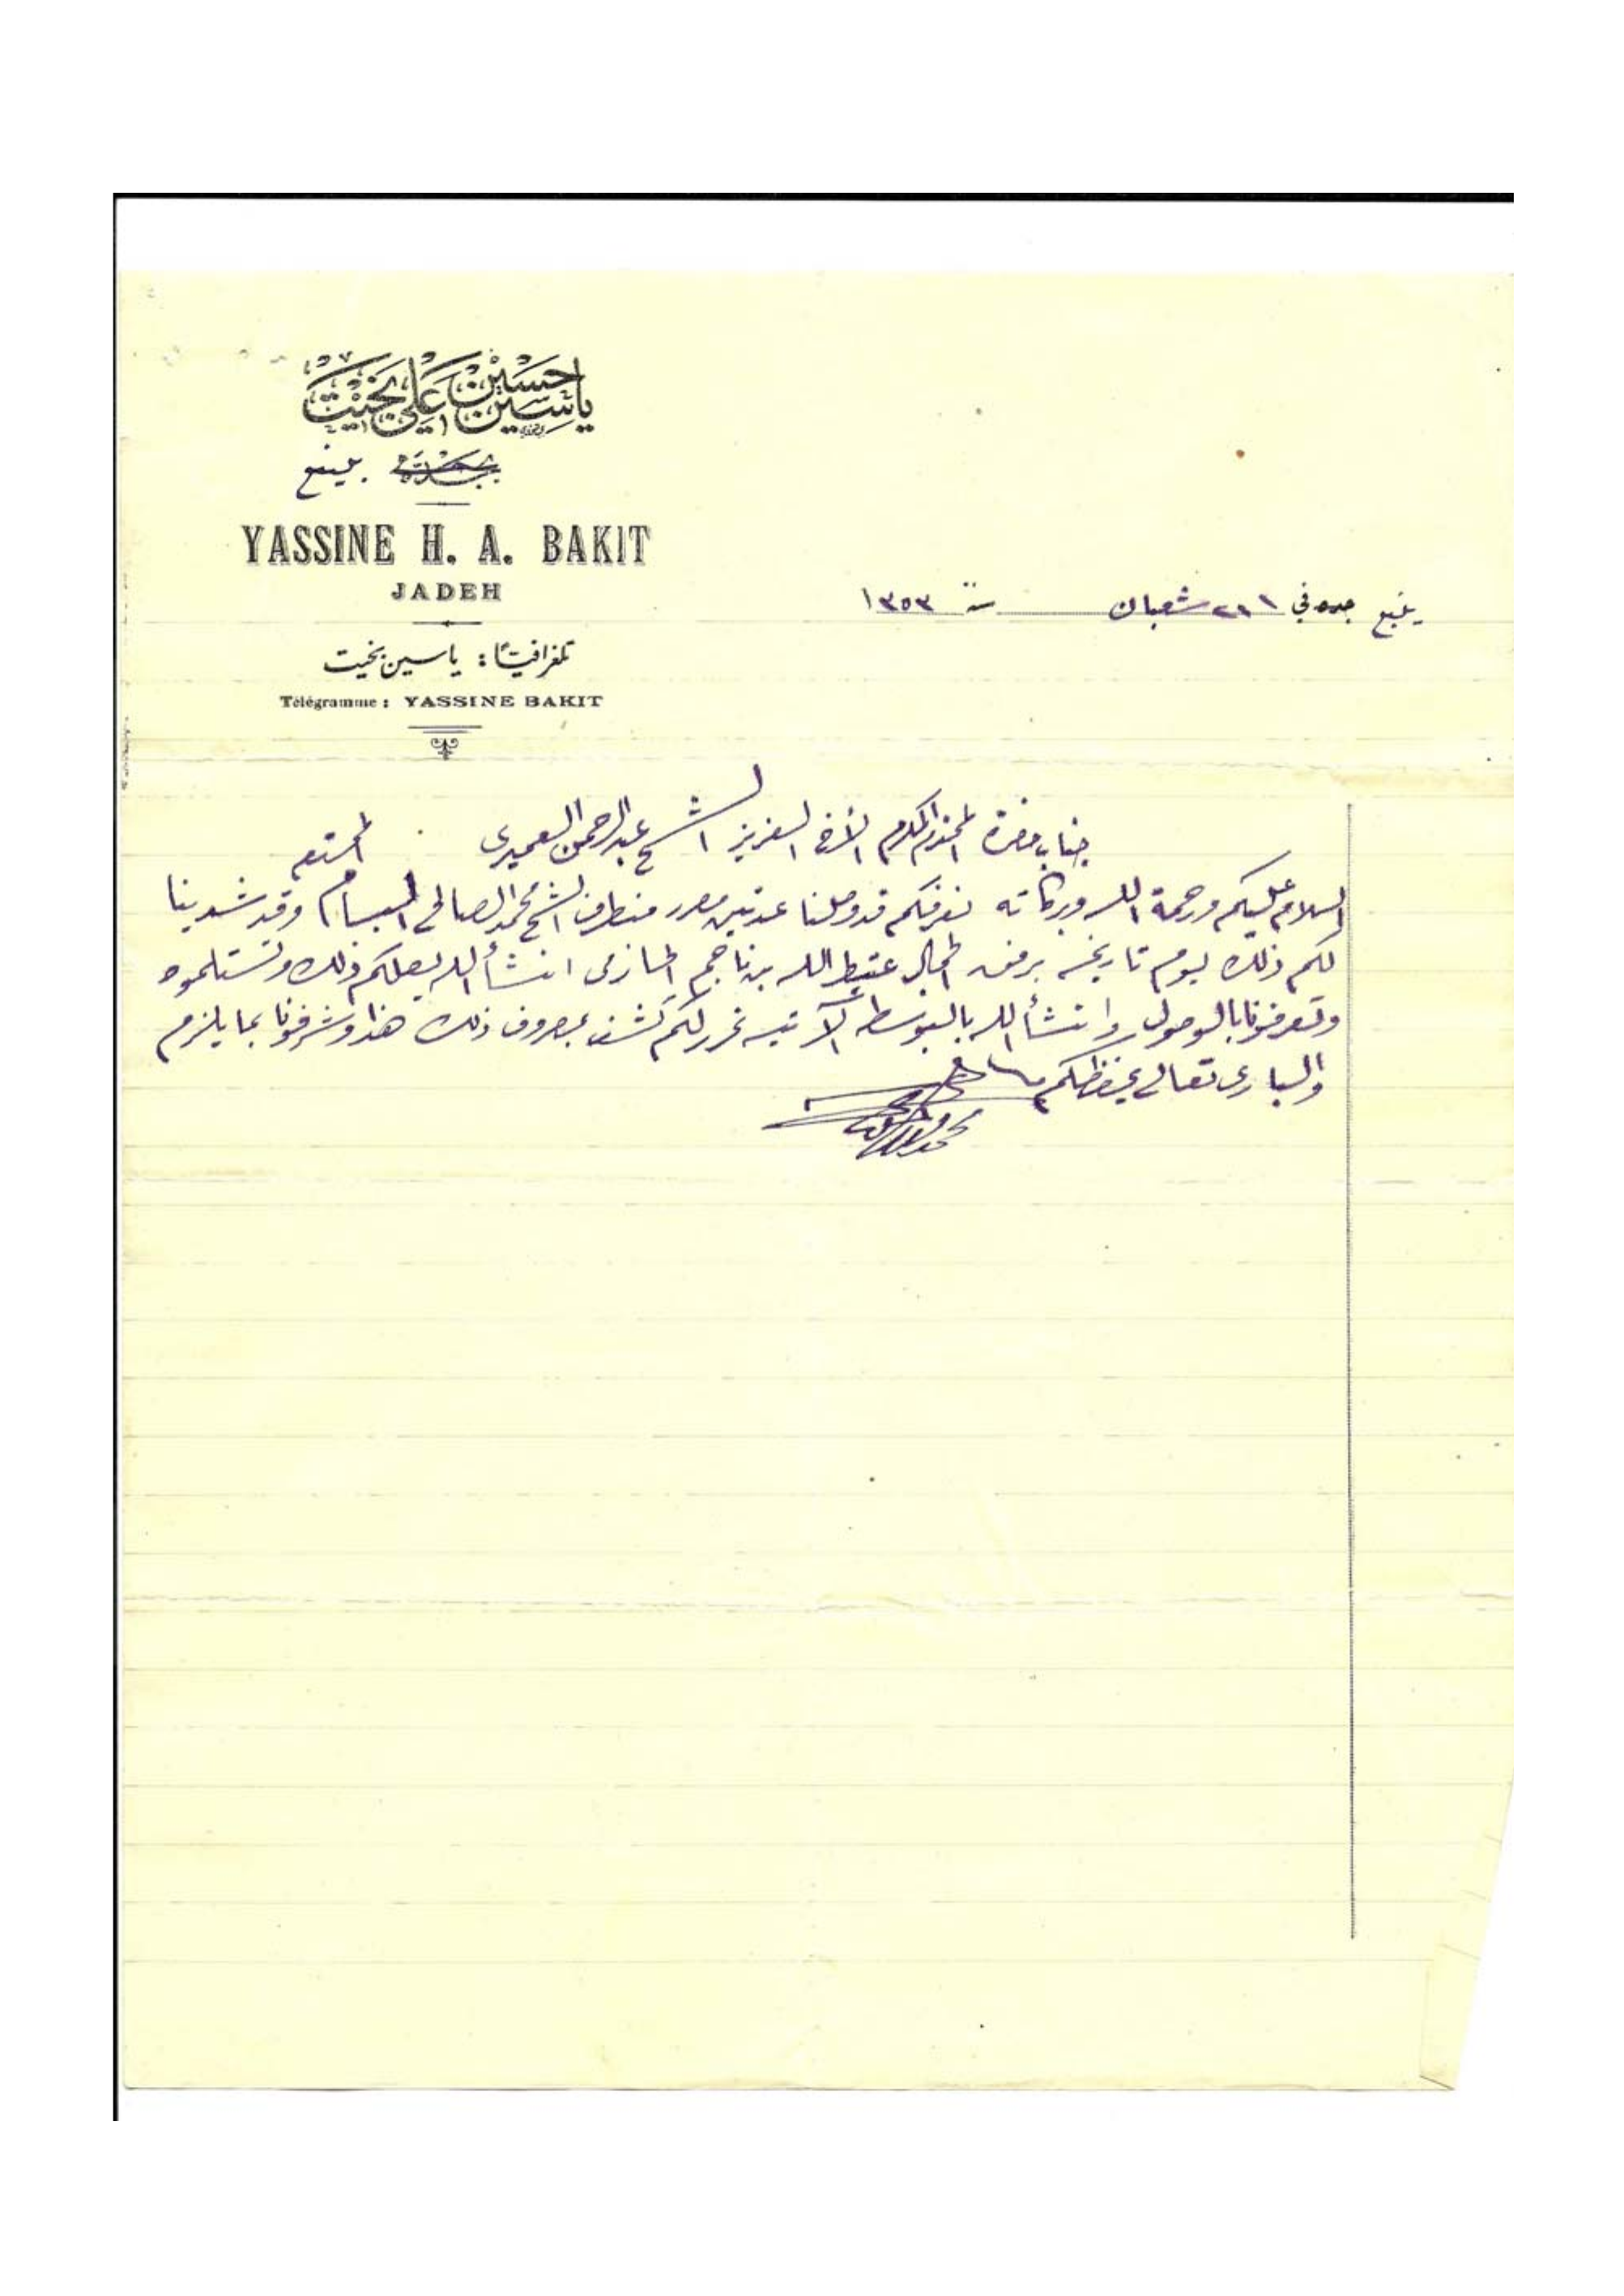 ياسين حسين علي بخيت
بجدة بينبع
YASSINE H. A. BAKIT
JADEH
ينبع جده في شعبان سنة ١٣٥٣
تلغرافيًا : ياسين بخيت
Télégramme : YASSINE BAKIT
جناب حضرة المحترم المكرم الأخ العزيز الشيخ عبدالرحمن العميري المحترم
السلام عليكم ورحمة الله وبركاته نعرفكم قد وصلنا مصرر منطرف الشيخ محمد الصالح البسام وقد شدينا
لكم ذلك يوم تاريخه برفق الجمال عتيط الله بن ناجم الحازمى انشأ الله يصلكم ذلك وتستلموه
وتعرفونا بالوصول وانشأ الله بالبوسطه الآتيه نحرر لكم كشف بمصروف ذلك هذا وشرفونا بما يلزم
والبارى تعالى يحفظكم